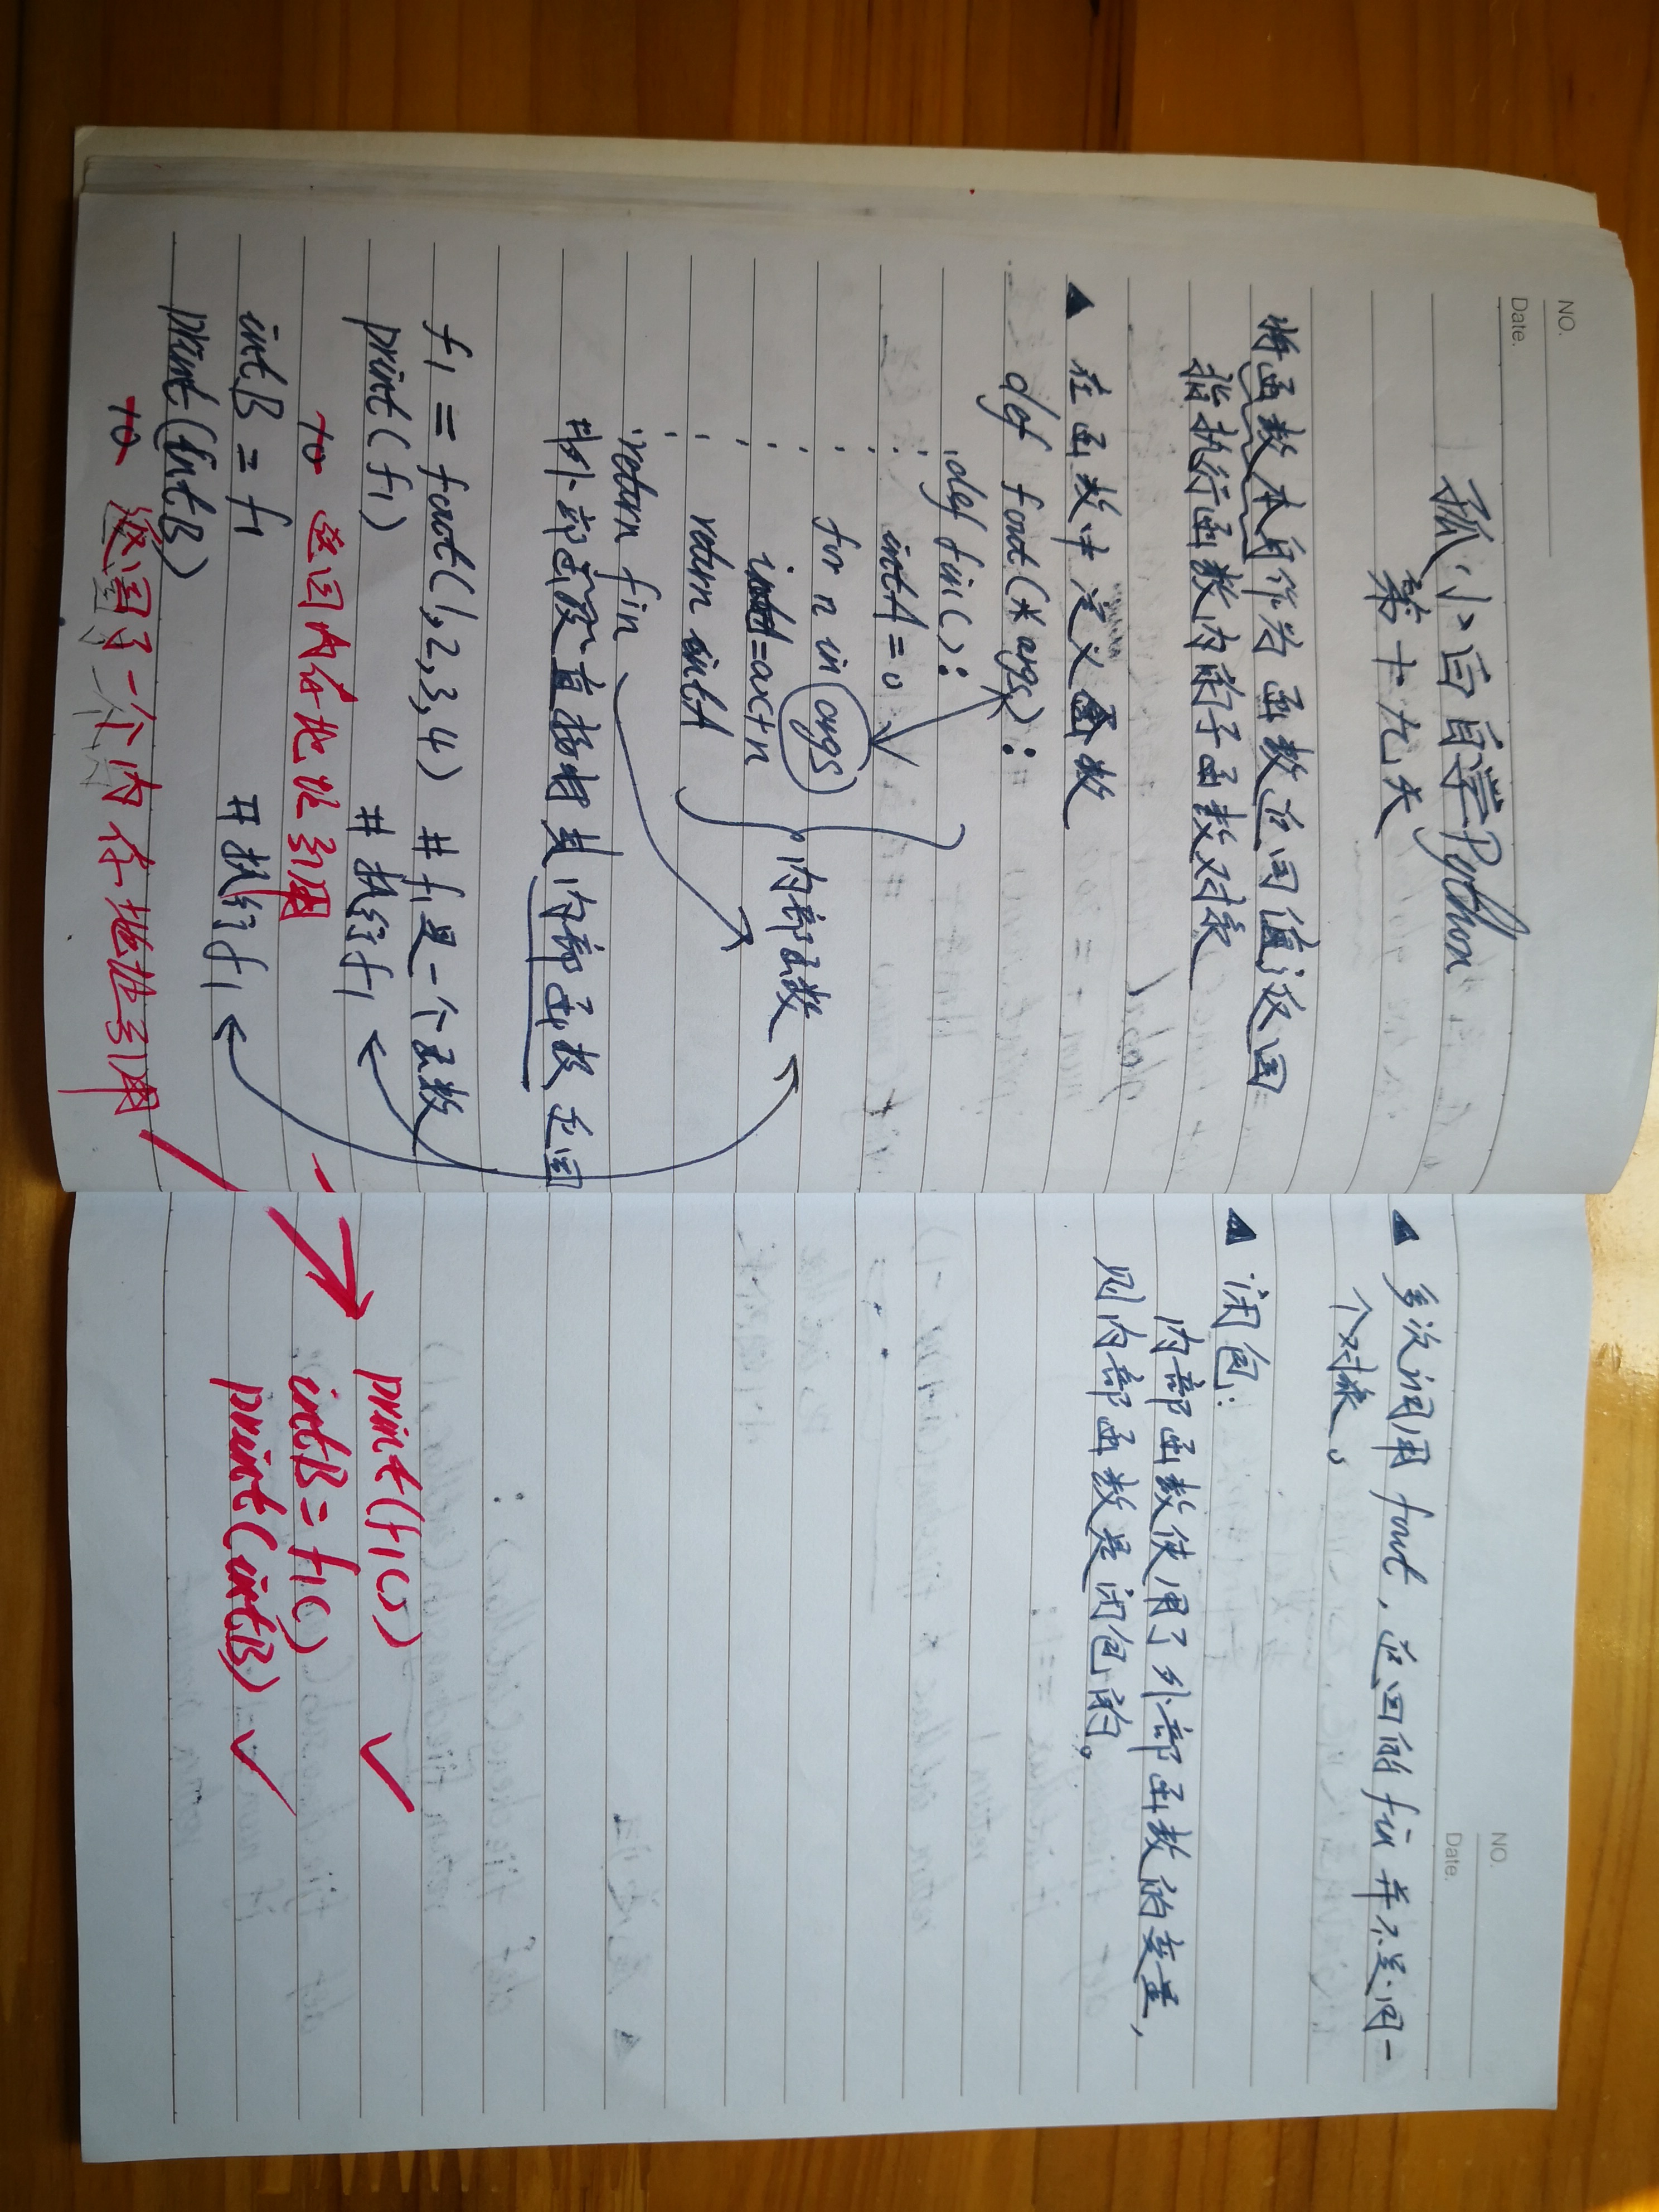 NO.
Date.
孤小白自学Python
第十九天
将函数本身作为函数返回值返回
指执行函数内的子函数对象
▲ 在函数中定义函数
def fout(*args):
def fin():
intA=0
for n in args
=ax+n
return intA
内部函数
return fin
#外部函数直接将其内部函数返回
f1 = fout(1,2,3,4) #f1是一个函数
print(f1) #执行f1
10 返回内存地址引用
intB = f1 #执行f1
print(intB)
10 返回了一个内存地址引用
NO.
Date.
▲ 多次调用fout,返回的fin并不是同一
个对象。
▲ 闭包:
内部函数使用了外部函数的变量,
则内部函数是闭包的。
print(f1()) ✓
intB=f1()
print(intB) ✓